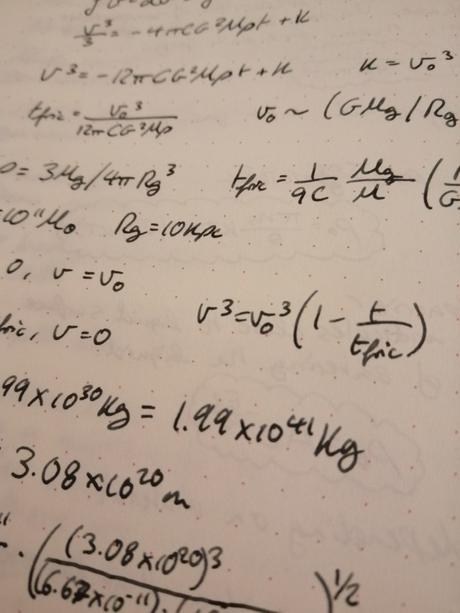 v³/3 = -4πCG²Mρt + K
v³ = -12πCG²Mρt + K K = v₀³
tfric = v₀³/12πCG²Mρ v₀ ~ (GMg/Rg
= 3Mg/4πRg³ tfric = 1/9C Mg/M (1/G
10¹¹M₀ Rg = 10kpc
0, v = v₀
fric, v = 0 v³ = v₀³(1 - t/tfric)
99×10³⁰kg = 1.99×10⁴¹kg
3.08×10²⁰m
((3.08×10²⁰)³/(6.67×10⁻¹¹)·( )^1/2